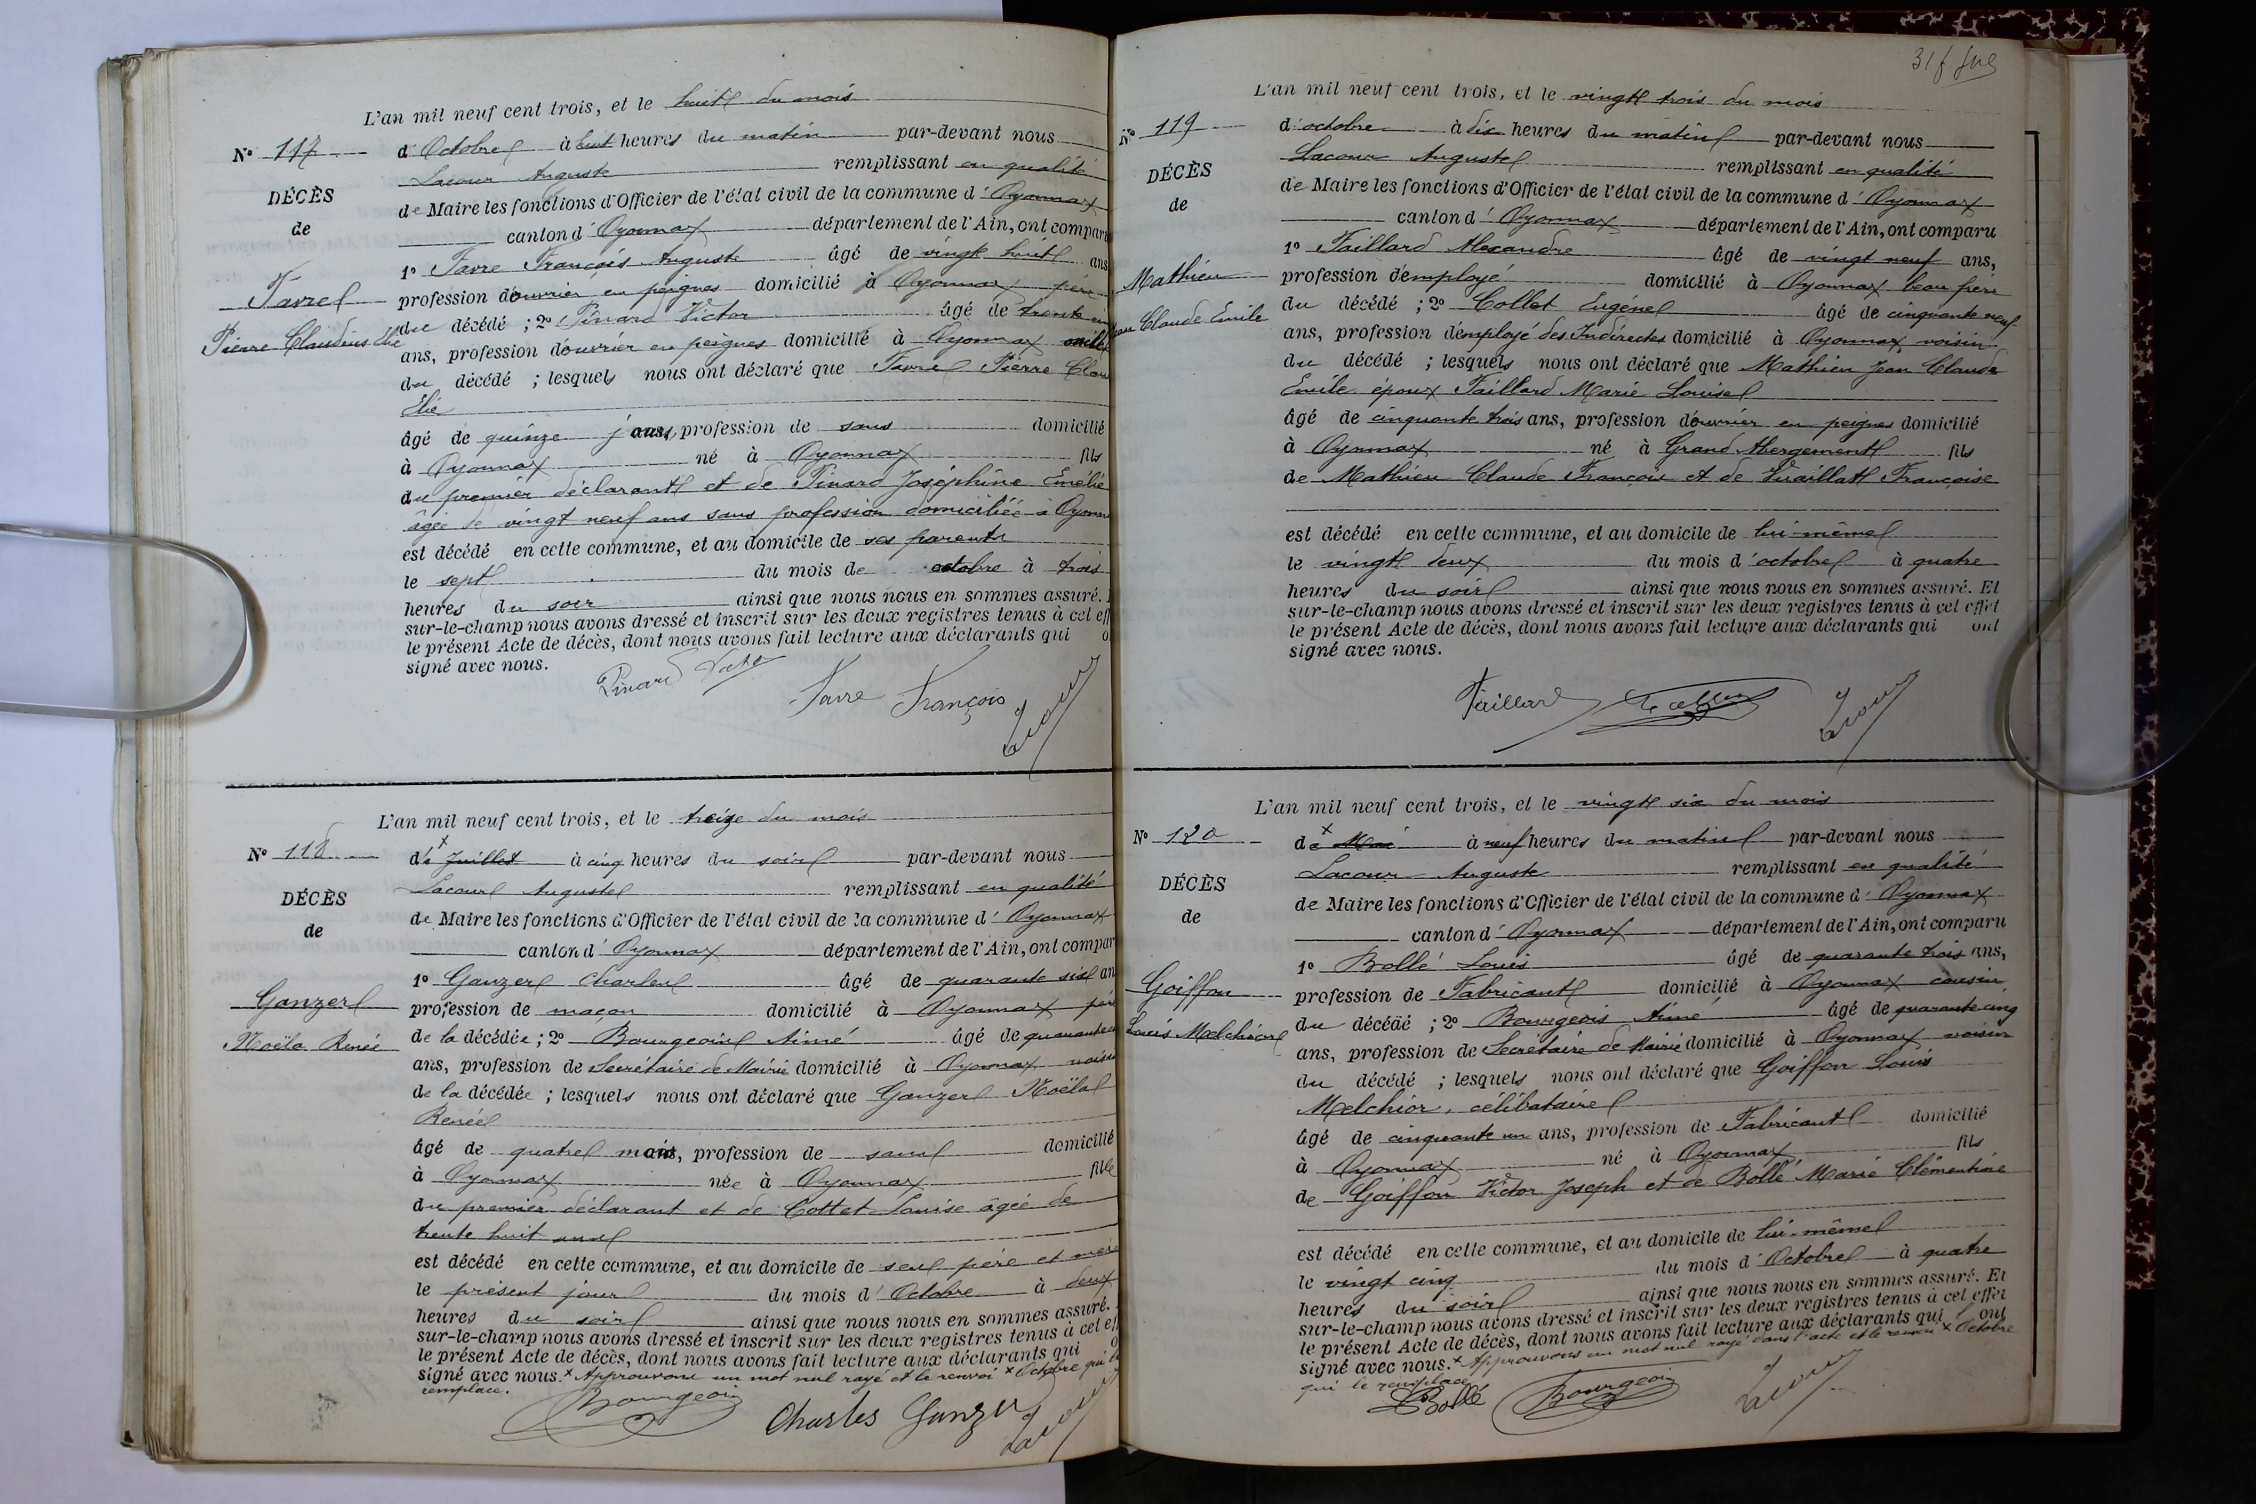 L'an mil neuf cent trois, et le huit du mois
N° 117
d'Octobre à huit heures du matin par-devant nous
Lacour Auguste remplissant en qualité
DÉCÈS
de Maire les fonctions d'Officier de l'état civil de la commune d'Oyonnax
de
canton d'Oyonnax département de l'Ain, ont comparu
1° Favre François Auguste âgé de vingt huit ans
Favre
profession d'ouvrier en peignes domicilié à Oyonnax, père
Pierre Claudius Élie
du décédé ; 2° Pinard Victor âgé de trente
ans, profession d'ouvrier en peignes domicilié à Oyonnax oncle
du décédé ; lesquels nous ont déclaré que Favre Pierre Clau
Élie
âgé de quinze jours, profession de sans domicilié
à Oyonnax né à Oyonnax fils
du premier déclarant et de Pinard Joséphine Emélie
âgée de vingt neuf ans sans profession domiciliée à Oyonn
est décédé en cette commune, et au domicile de ses parents
le sept du mois de octobre à trois
heures du soir ainsi que nous nous en sommes assuré.
sur-le-champ nous avons dressé et inscrit sur les deux registres tenus à cet eff
le présent Acte de décès, dont nous avons fait lecture aux déclarants qui o
signé avec nous.
Pinard Favre François
Lacour
L'an mil neuf cent trois, et le treize du mois
N° 118
d'× Juillet à cinq heures du soir par-devant nous
Lacour Auguste remplissant en qualité
DÉCÈS
de Maire les fonctions d'Officier de l'état civil de la commune d'Oyonnax
de
canton d'Oyonnax département de l'Ain, ont compar
1° Ganzer Charles âgé de quarante six an
Ganzer
profession de maçon domicilié à Oyonnax père
Noëla Renée
de la décédée ; 2° Bourgeois Aimé âgé de quarante
ans, profession de Secrétaire de Mairie domicilié à Oyonnax voisin
de la décédée ; lesquels nous ont déclaré que Ganzer Noëla
Renée
âgé de quatre mois, profession de sans domicilié
à Oyonnax née à Oyonnax fille
du premier déclarant et de Cottet Louise âgée de
trente huit ans
est décédé en cette commune, et au domicile de ses père et mère
le présent jour du mois d'Octobre à deux
heures du soir ainsi que nous nous en sommes assuré.
sur-le-champ nous avons dressé et inscrit sur les deux registres tenus à cet ef
le présent Acte de décès, dont nous avons fait lecture aux déclarants qui o
signé avec nous. × Approuvons un mot nul rayé et le renvoi × Octobre qui le
remplace.
Bourgeois Charles Ganzer Lacour
31
L'an mil neuf cent trois, et le vingt trois du mois
N° 119
d'octobre à dix heures du matin par-devant nous
Lacour Auguste remplissant en qualité
DÉCÈS
de Maire les fonctions d'Officier de l'état civil de la commune d'Oyonnax
de
canton d'Oyonnax département de l'Ain, ont comparu
1° Taillard Alexandre âgé de vingt neuf ans,
Mathieu
profession d'employé domicilié à Oyonnax beau frère
Jean Claude Emile
du décédé ; 2° Collet Eugène âgé de cinquante neuf
ans, profession d'employé des Indirectes domicilié à Oyonnax, voisin
du décédé ; lesquels nous ont déclaré que Mathieu Jean Claude
Emile époux Taillard Marie Louise
âgé de cinquante trois ans, profession d'ouvrier en peignes domicilié
à Oyonnax né à Grand Abergement fils
de Mathieu Claude François et de Françoise
est décédé en cette commune, et au domicile de lui-même
le vingt deux du mois d'octobre à quatre
heures du soir ainsi que nous nous en sommes assuré. Et
sur-le-champ nous avons dressé et inscrit sur les deux registres tenus à cet effet
le présent Acte de décès, dont nous avons fait lecture aux déclarants qui ont
signé avec nous.
Taillard Lacour
L'an mil neuf cent trois, et le vingt six du mois
N° 120
d× Mai à neuf heures du matin par-devant nous
Lacour Auguste remplissant en qualité
DÉCÈS
de Maire les fonctions d'Officier de l'état civil de la commune d'Oyonnax
de
canton d'Oyonnax département de l'Ain, ont comparu
1° Bollé Louis âgé de quarante trois ans,
Goiffon
profession de Fabricant domicilié à Oyonnax cousin
Louis Melchior
du décédé ; 2° Bourgeois Aimé âgé de quarante cinq
ans, profession de Secrétaire de Mairie domicilié à Oyonnax voisin
du décédé ; lesquels nous ont déclaré que Goiffon Louis
Melchior, célibataire
âgé de cinquante un ans, profession de Fabricant domicilié
à Oyonnax né à Oyonnax fils
de Goiffon Victor Joseph et de Bollé Marie Clémentine
est décédé en cette commune, et au domicile de lui-même
le vingt cinq du mois d'Octobre à quatre
heures du soir ainsi que nous nous en sommes assuré. Et
sur-le-champ nous avons dressé et inscrit sur les deux registres tenus à cet effet
le présent Acte de décès, dont nous avons fait lecture aux déclarants qui ont
signé avec nous. × Approuvons un mot nul rayé dans l'acte et le renvoi × Octobre
qui le remplace
LBollé Bourgeois Lacour